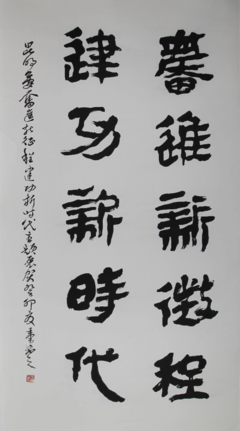 奮進新徵程
建功新時代
奮進新征程建功新时代 癸卯